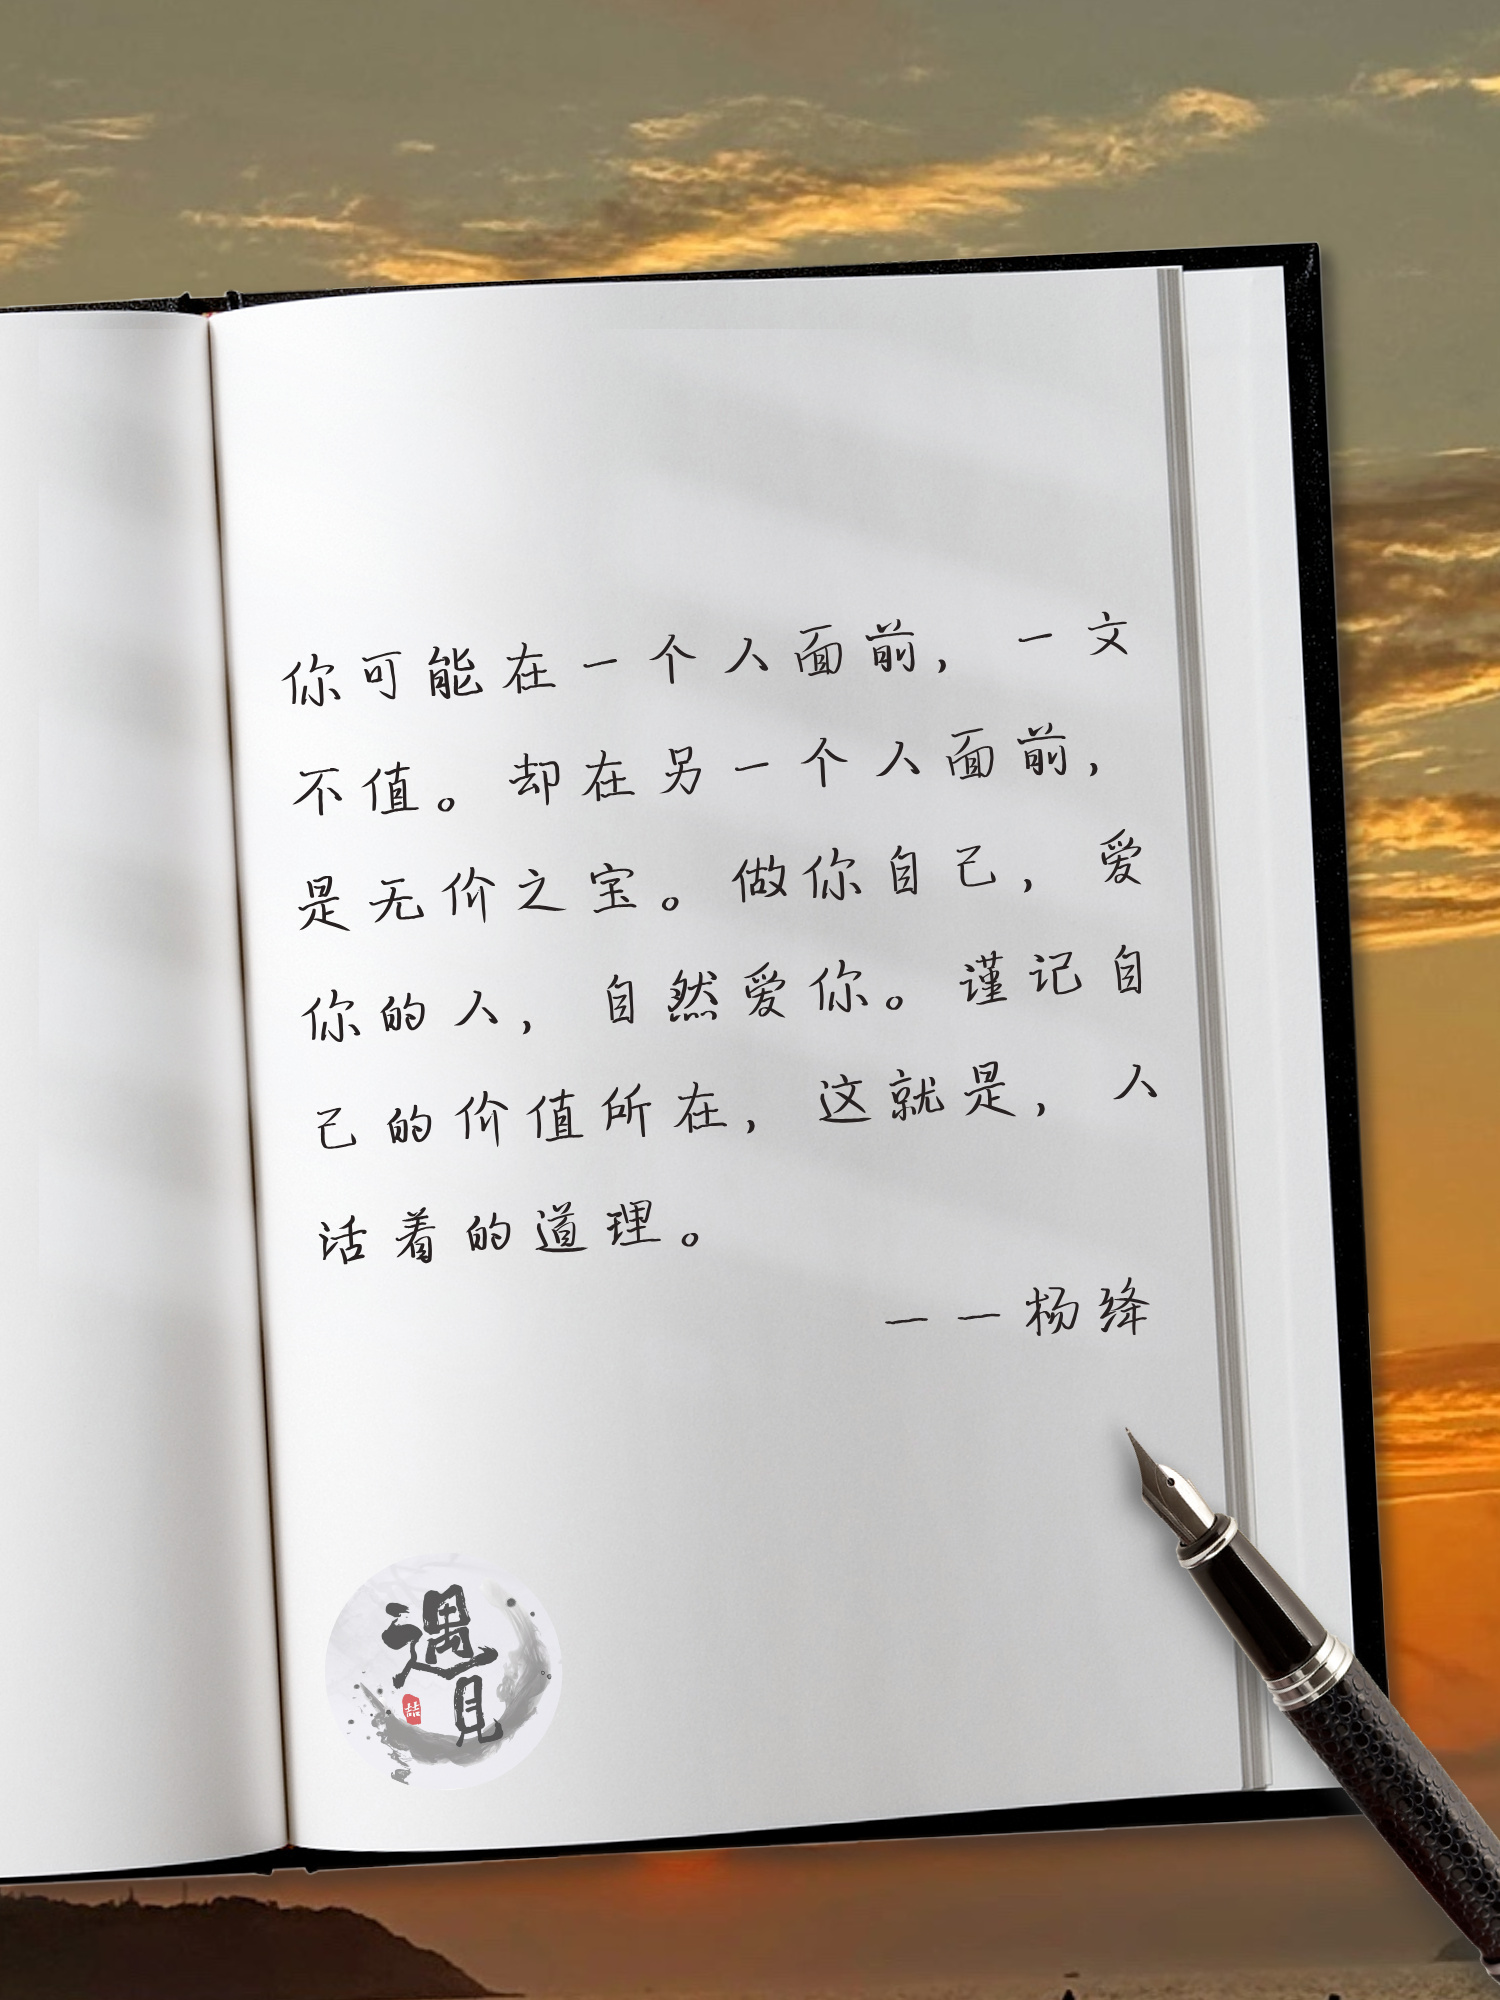 你可能在一个人面前，一文
不值。却在另一个人面前，
是无价之宝。做你自己，爱
你的人，自然爱你。谨记自
己的价值所在，这就是，人
活着的道理。
——杨绛
遇
见